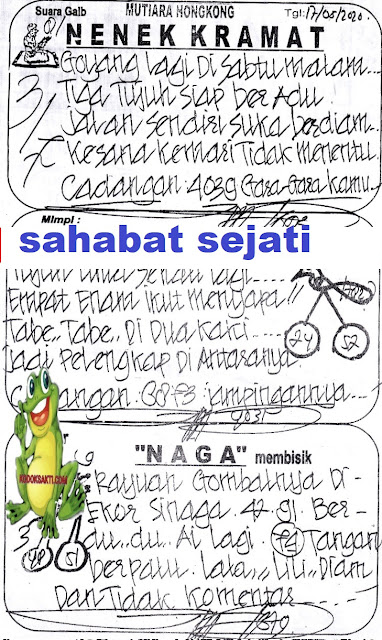 Suara Gaib
MUTIARA HONGKONG
Tgl: 17/05/2020
NENEK KRAMAT
Goyang lagi Di Sabtu malam...
Tiga Tujuh Siap ber Adu.
Jalan Sendiri Suka berdiam
Kesana Kemari Tidak Menentu
Cadangan 4039 Gara-Gara kamu
MImpi :
sahabat sejati
lagi
Empat Enam Ikut Menyapa!!
Tabe,, Tabe,, Di Dua kaki
Jadi Pelengkap Di Antaranya.
24 52
3873 jampingannya...
KODOKSAKTI.COM
"NAGA" membisik
Rayuan Gombalnya Di-
Ekor Sinaga 42 91. Ber-
du..du.. Ai Lagi. Tangan
51
berpalu. Lala,, Lili,, Diam
Dan Tidak Komentar